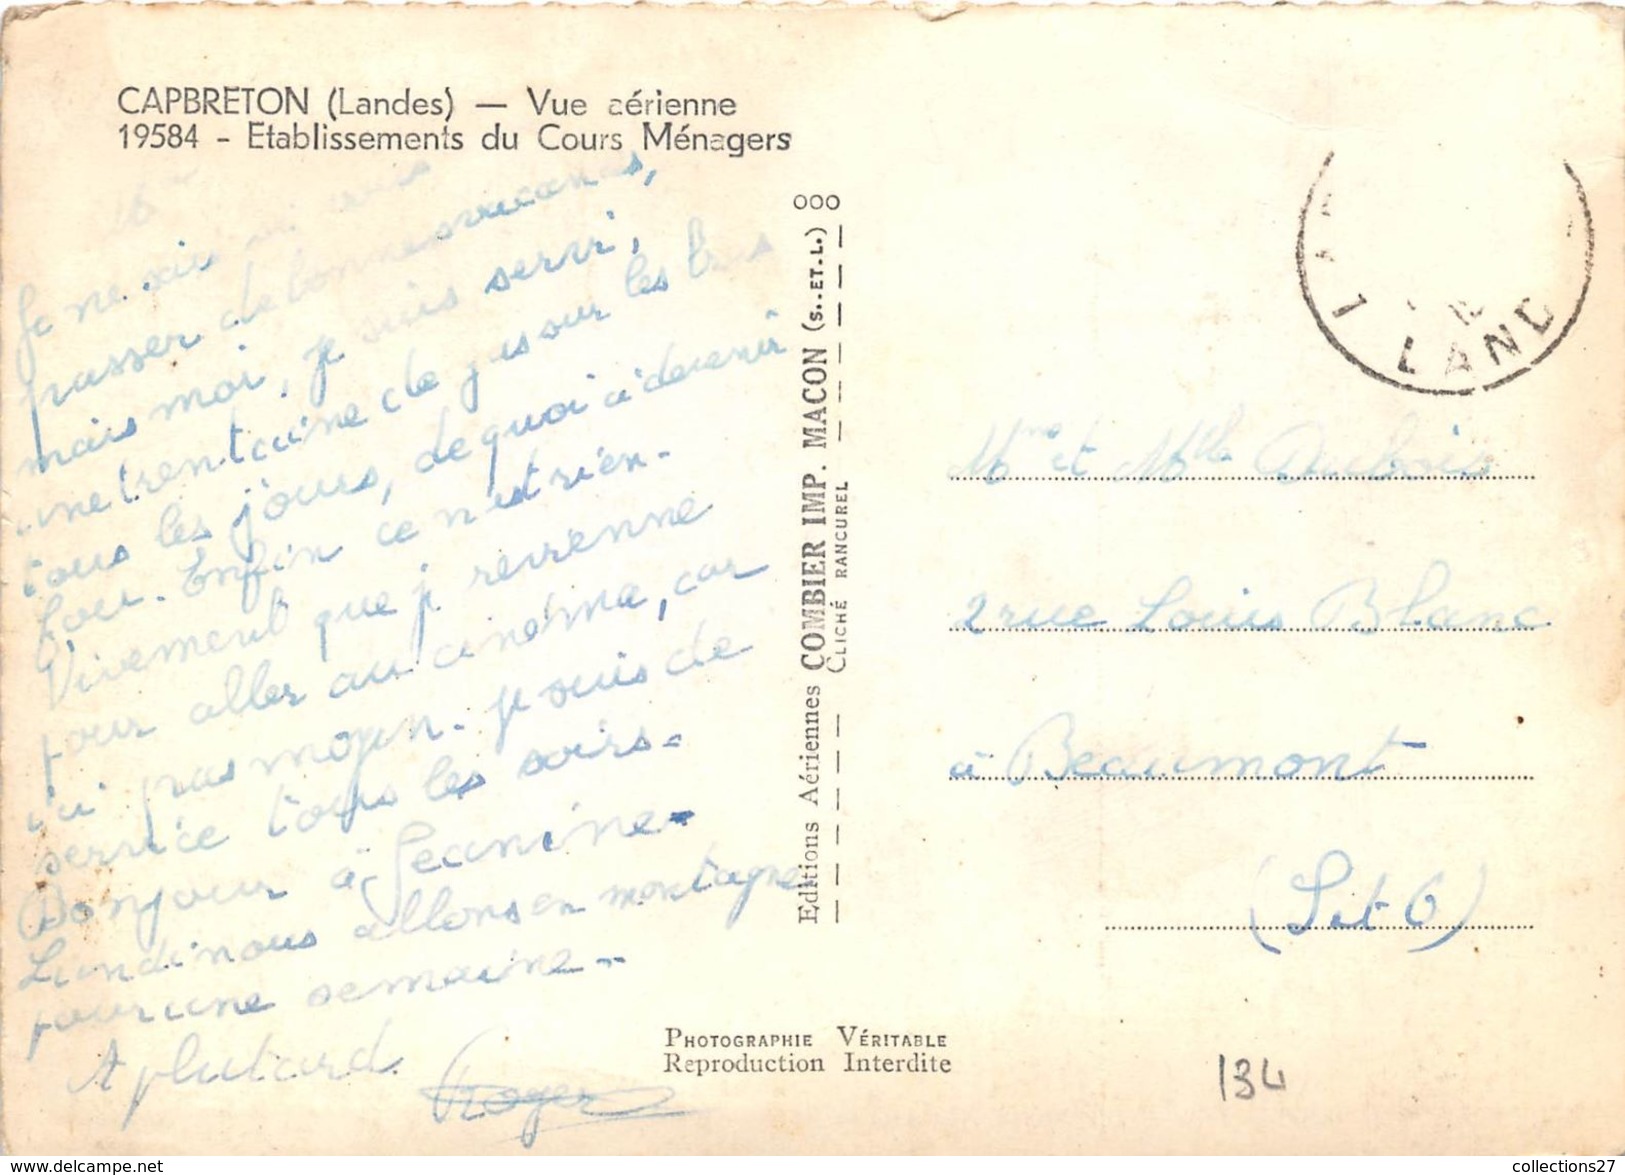 CAPBRETON (Landes) — Vue aérienne
19584 - Etablissements du Cours Ménagers
Je ne sais
passer de bonnes vacances,
mais moi, je suis servi,
une trentaine de gus sur les bras
tous les jours, de quoi à devenir
fou. Enfin ce n'est rien.
Vivement que je revienne
pour aller au cinéma, car
ici pas moyen. Je suis de
service tous les soirs.
Bonjour à Jeanine.
Lundi nous allons en montagne
pour une semaine.
A plutard.
Roger
Editions Aériennes COMBIER IMP. MACON (S. ET. L.)
CLICHÉ RANCUREL
LAND
Mme et Mlle Dubois
2 rue Louis Blanc
à Beaumont
(Set O)
PHOTOGRAPHIE VÉRITABLE
Reproduction Interdite
134
collections27